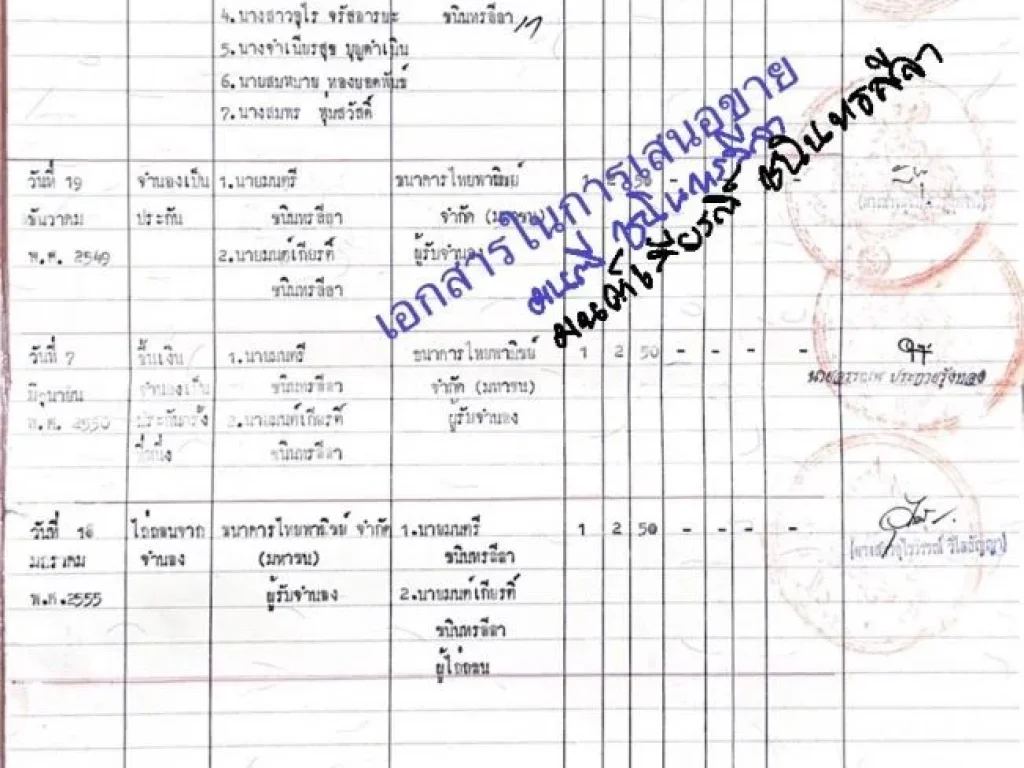 4.นางสาวอุไร จรัสอารยะ ชนินทรลีลา
5.นางจำเนียรสุข บุญดำเนิน
6.นายสมหมาย ทองยอดพันธ์
7.นางสมพร ชุ่มสวัสดิ์
เอกสารในการเสนอขาย
มนตรี ชนินทรลีลา
มนต์เกียรติ ชนินทรลีลา
วันที่ 19 จำนองเป็น 1.นายมนตรี ธนาคารไทยพาณิชย์ 1 2 50 - -
ธันวาคม ประกัน ชนินทรลีลา จำกัด (มหาชน)
พ.ศ. 2549 2.นายมนต์เกียรติ์ ผู้รับจำนอง
ชนินทรลีลา
วันที่ 7 ขึ้นเงิน 1.นายมนตรี ธนาคารไทยพาณิชย์ 1 2 50 - - - -
มิถุนายน จำนองเป็น ชนินทรลีลา จำกัด (มหาชน)
พ.ศ. 2550 ประกันครั้ง 2.นายมนต์เกียรติ์ ผู้รับจำนอง
ที่หนึ่ง ชนินทรลีลา
วันที่ 16 ไถ่ถอนจาก ธนาคารไทยพาณิชย์ จำกัด 1.นายมนตรี 1 2 50 - - - -
มกราคม จำนอง (มหาชน) ชนินทรลีลา
พ.ศ.2555 ผู้รับจำนอง 2.นายมนต์เกียรติ์
ชนินทรลีลา
ผู้ไถ่ถอน